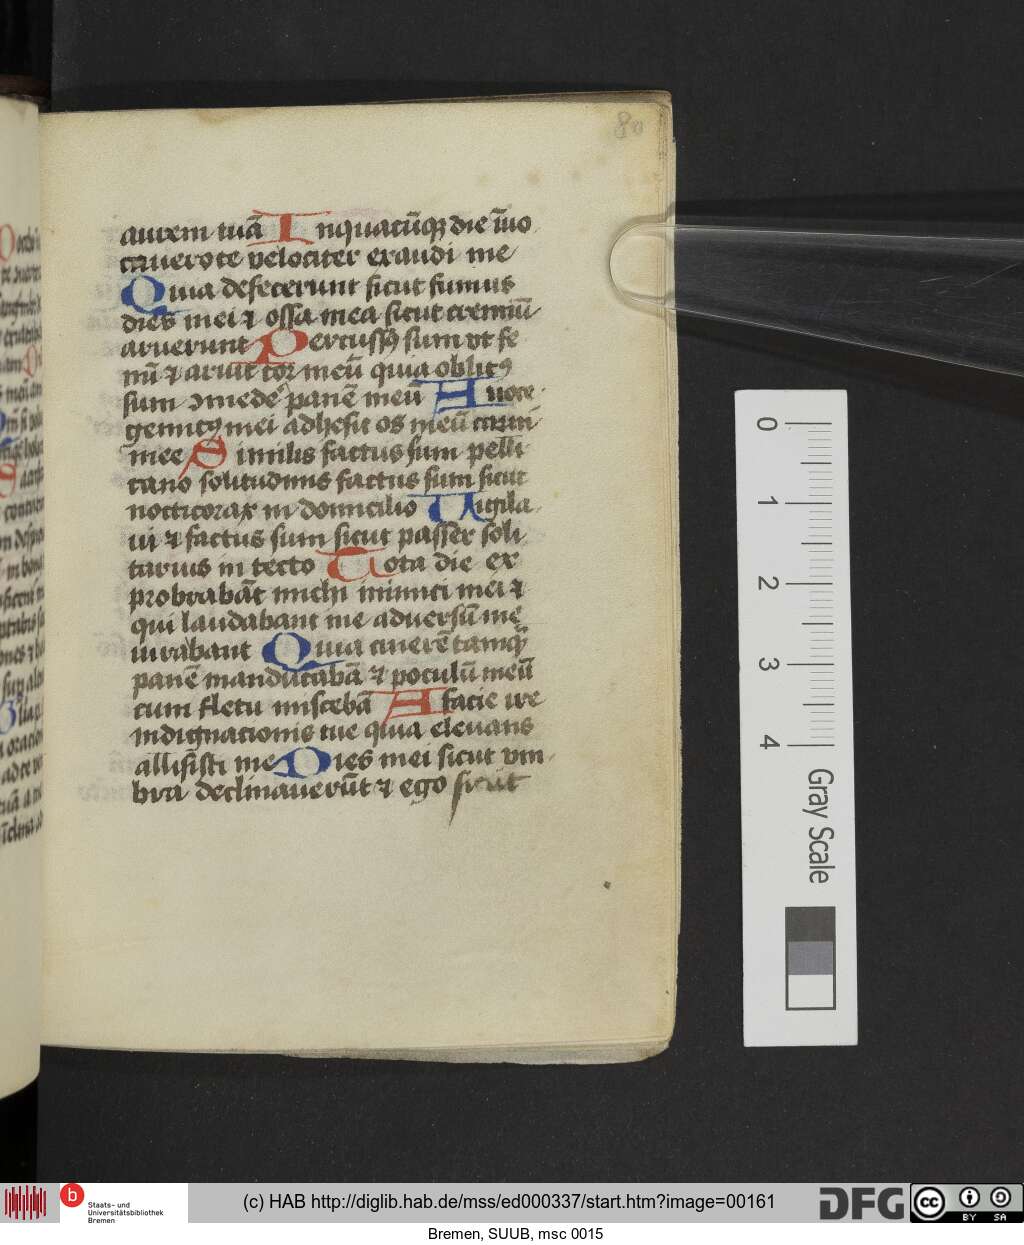 80
aurem tuā In quacūqꝫ die īuo
cauero te velociter exaudi me
Quia defecerunt sicut fumus
dies mei ⁊ ossa mea sicut cremiū
aruerunt Percussꝯ sum vt fe
nū ⁊ aruit coꝛ meū quia oblitꝯ
sum ꝯmedē panē meū A uoce
gemitꝯ mei adhesit os meū carni
mee Similis factus sum pelli
cano solitudinis factus sum sicut
nocticorax in domicilio Uigila
ui ⁊ factus sum sicut passer soli
tarius in tecto Tota die ex
probrabāt michi inimici mei ⁊
qui laudabant me aduersū me
iurabant Quia cinerē tamqͣ
panē manducabā ⁊ poculū meū
cum fletu miscebā A facie ire
indignacionis tue quia eleuans
allisisti me Dies mei sicut vm
bra declinauerūt ⁊ ego sicut
0
1
2
3
4
Gray Scale
b
Staats- und
Universitätsbibliothek
Bremen
(c) HAB http://diglib.hab.de/mss/ed000337/start.htm?image=00161
DFG
cc BY SA
Bremen, SUUB, msc 0015